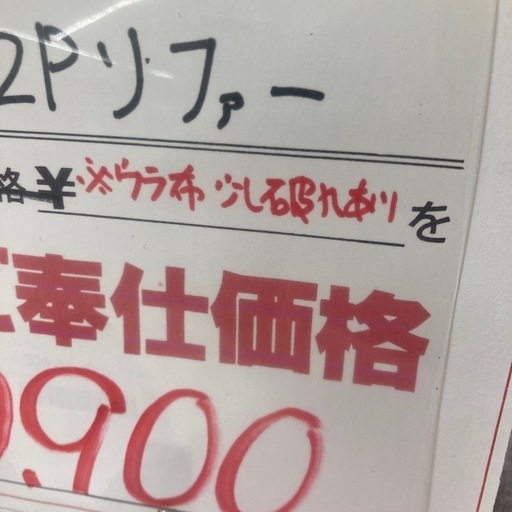 2Pソファー
格¥※ウラ布少し破れありを
ご奉仕価格
9,900